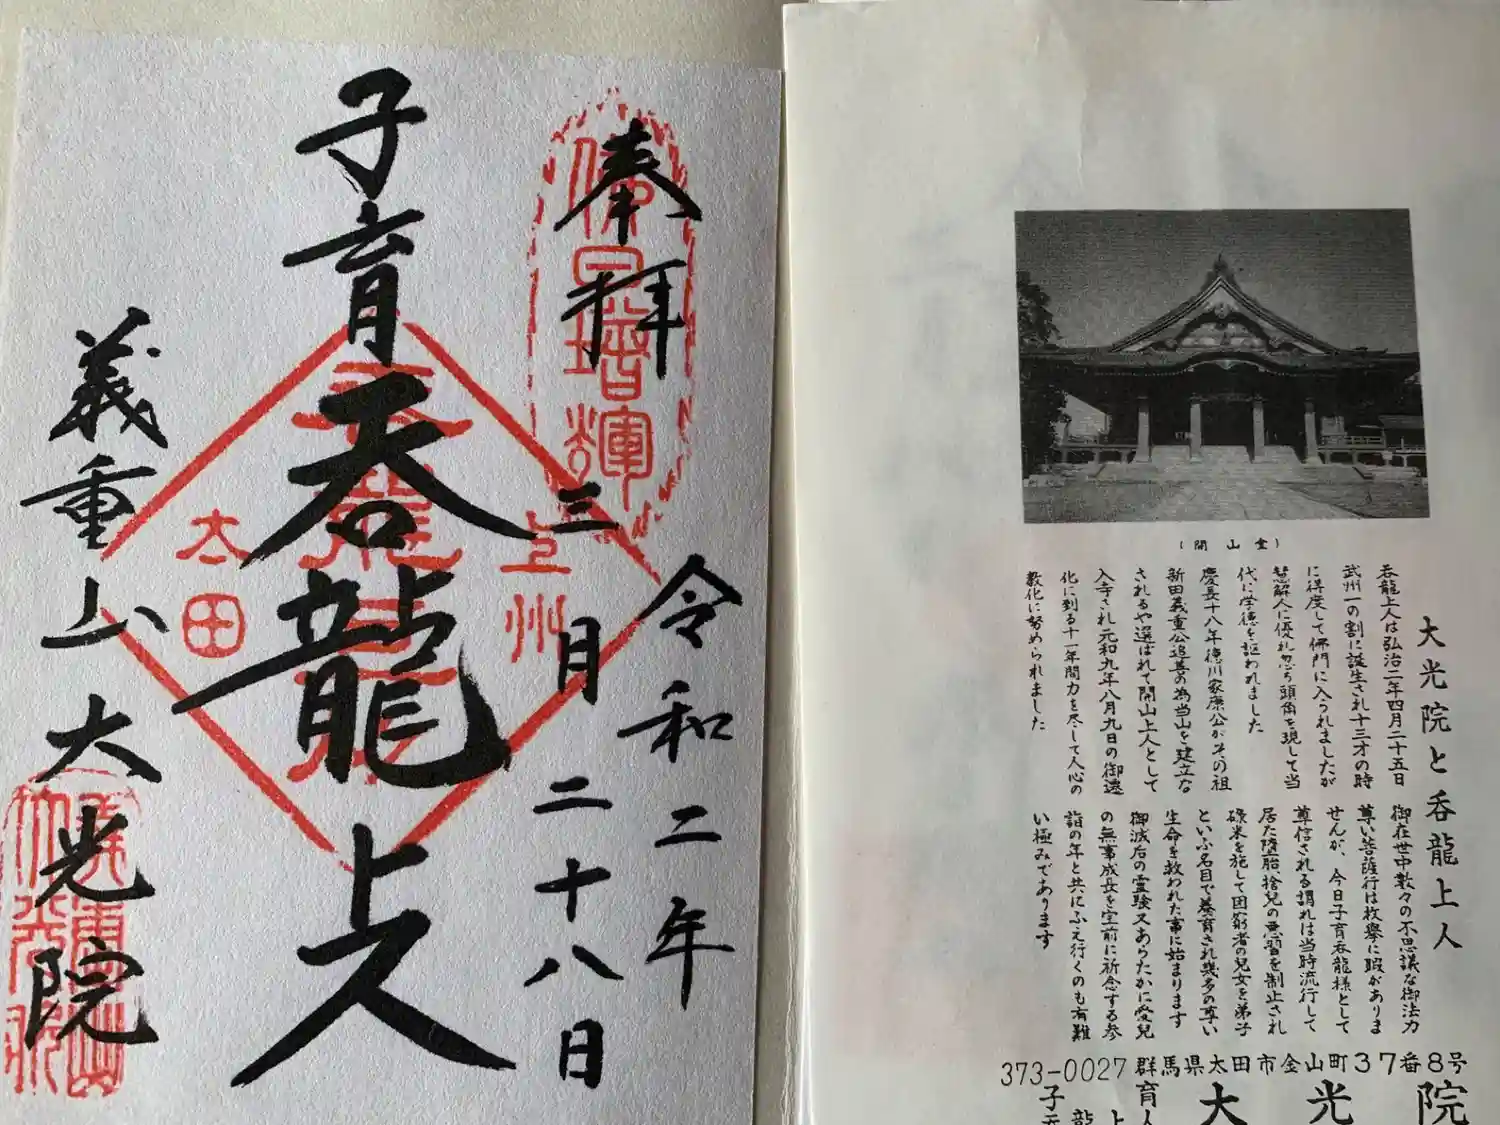 奉拝
令和二年
三月二十八日
子育呑龍上人
義重山大光院
上州
太田
(開山堂)
大光院と呑龍上人
呑龍上人は弘治二年四月二十五日
武州一の割に誕生され十三才の時
に得度して佛門に入られましたが
慧解人に優れ忽ち頭角を現して当
代に学徳を謳われました
慶長十八年徳川家康公がその祖
新田義重公追善の為当山を建立な
されるや選ばれて開山上人として
入寺され元和九年八月九日の御遷
化に到る十一年間力を尽して人心の
教化に努められました
御在世中数々の不思議な御法力
尊い菩薩行は枚挙に暇がありま
せんが、今日子育呑龍様として
尊信される謂れは当時流行して
居た堕胎、捨兒の悪習を制止され
禄米を施して困窮者の兒女を弟子
といふ名目で養育され幾多の尊い
生命を救われた事に始まります
御滅后の霊験又あらたかに愛兒
の無事成長を宝前に祈念する参
詣の年と共にふえ行くのも有難
い極みであります
373-0027 群馬県太田市金山町37番8号
大光院